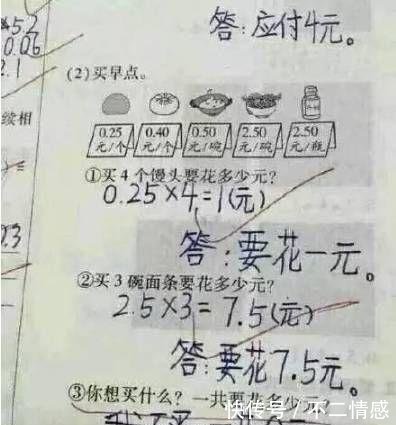 5.2
0.06
2.1
答：应付4元。
(2)买早点。
续相
0.25 0.40 0.50 2.50 2.50
元/个 元/个 元/碗 元/碗 元/瓶
①买4个馒头要花多少元?
0.25×4=1(元)
23
答：要花一元。
②买3碗面条要花多少元?
2.5×3=7.5(元)
答：要花7.5元。
③你想买什么？一共要花多少元?
快传号/不二情感